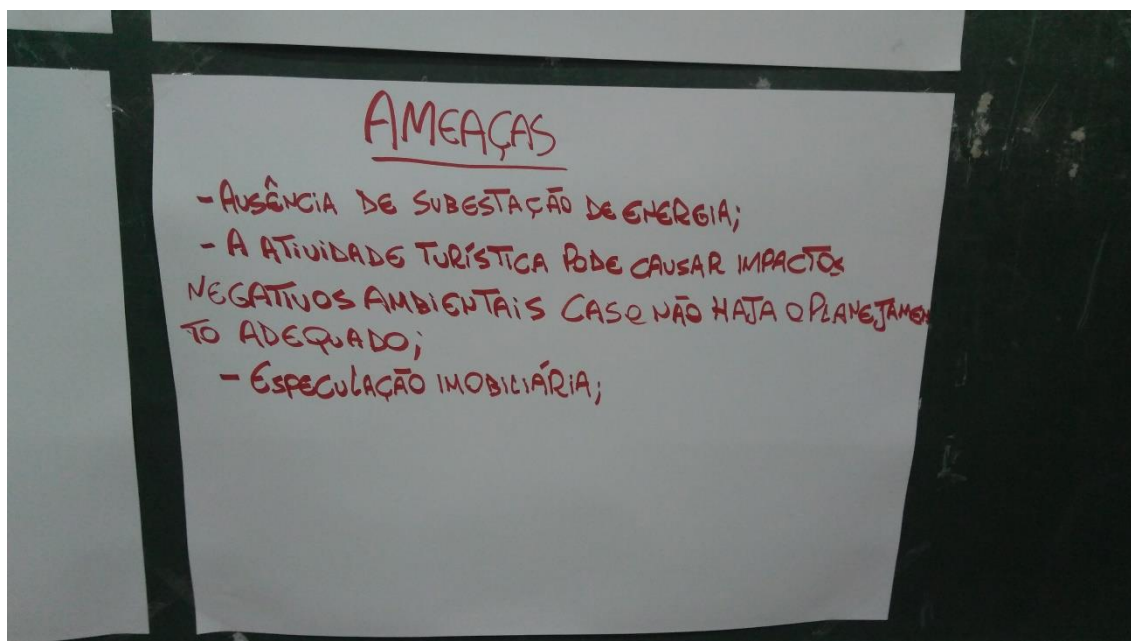 AMEAÇAS
- AUSÊNCIA DE SUBESTAÇÃO DE ENERGIA;
- A ATIVIDADE TURÍSTICA PODE CAUSAR IMPACTOS
NEGATIVOS AMBIENTAIS CASO NÃO HAJA O PLANEJAMEN
TO ADEQUADO;
- ESPECULAÇÃO IMOBILIÁRIA;